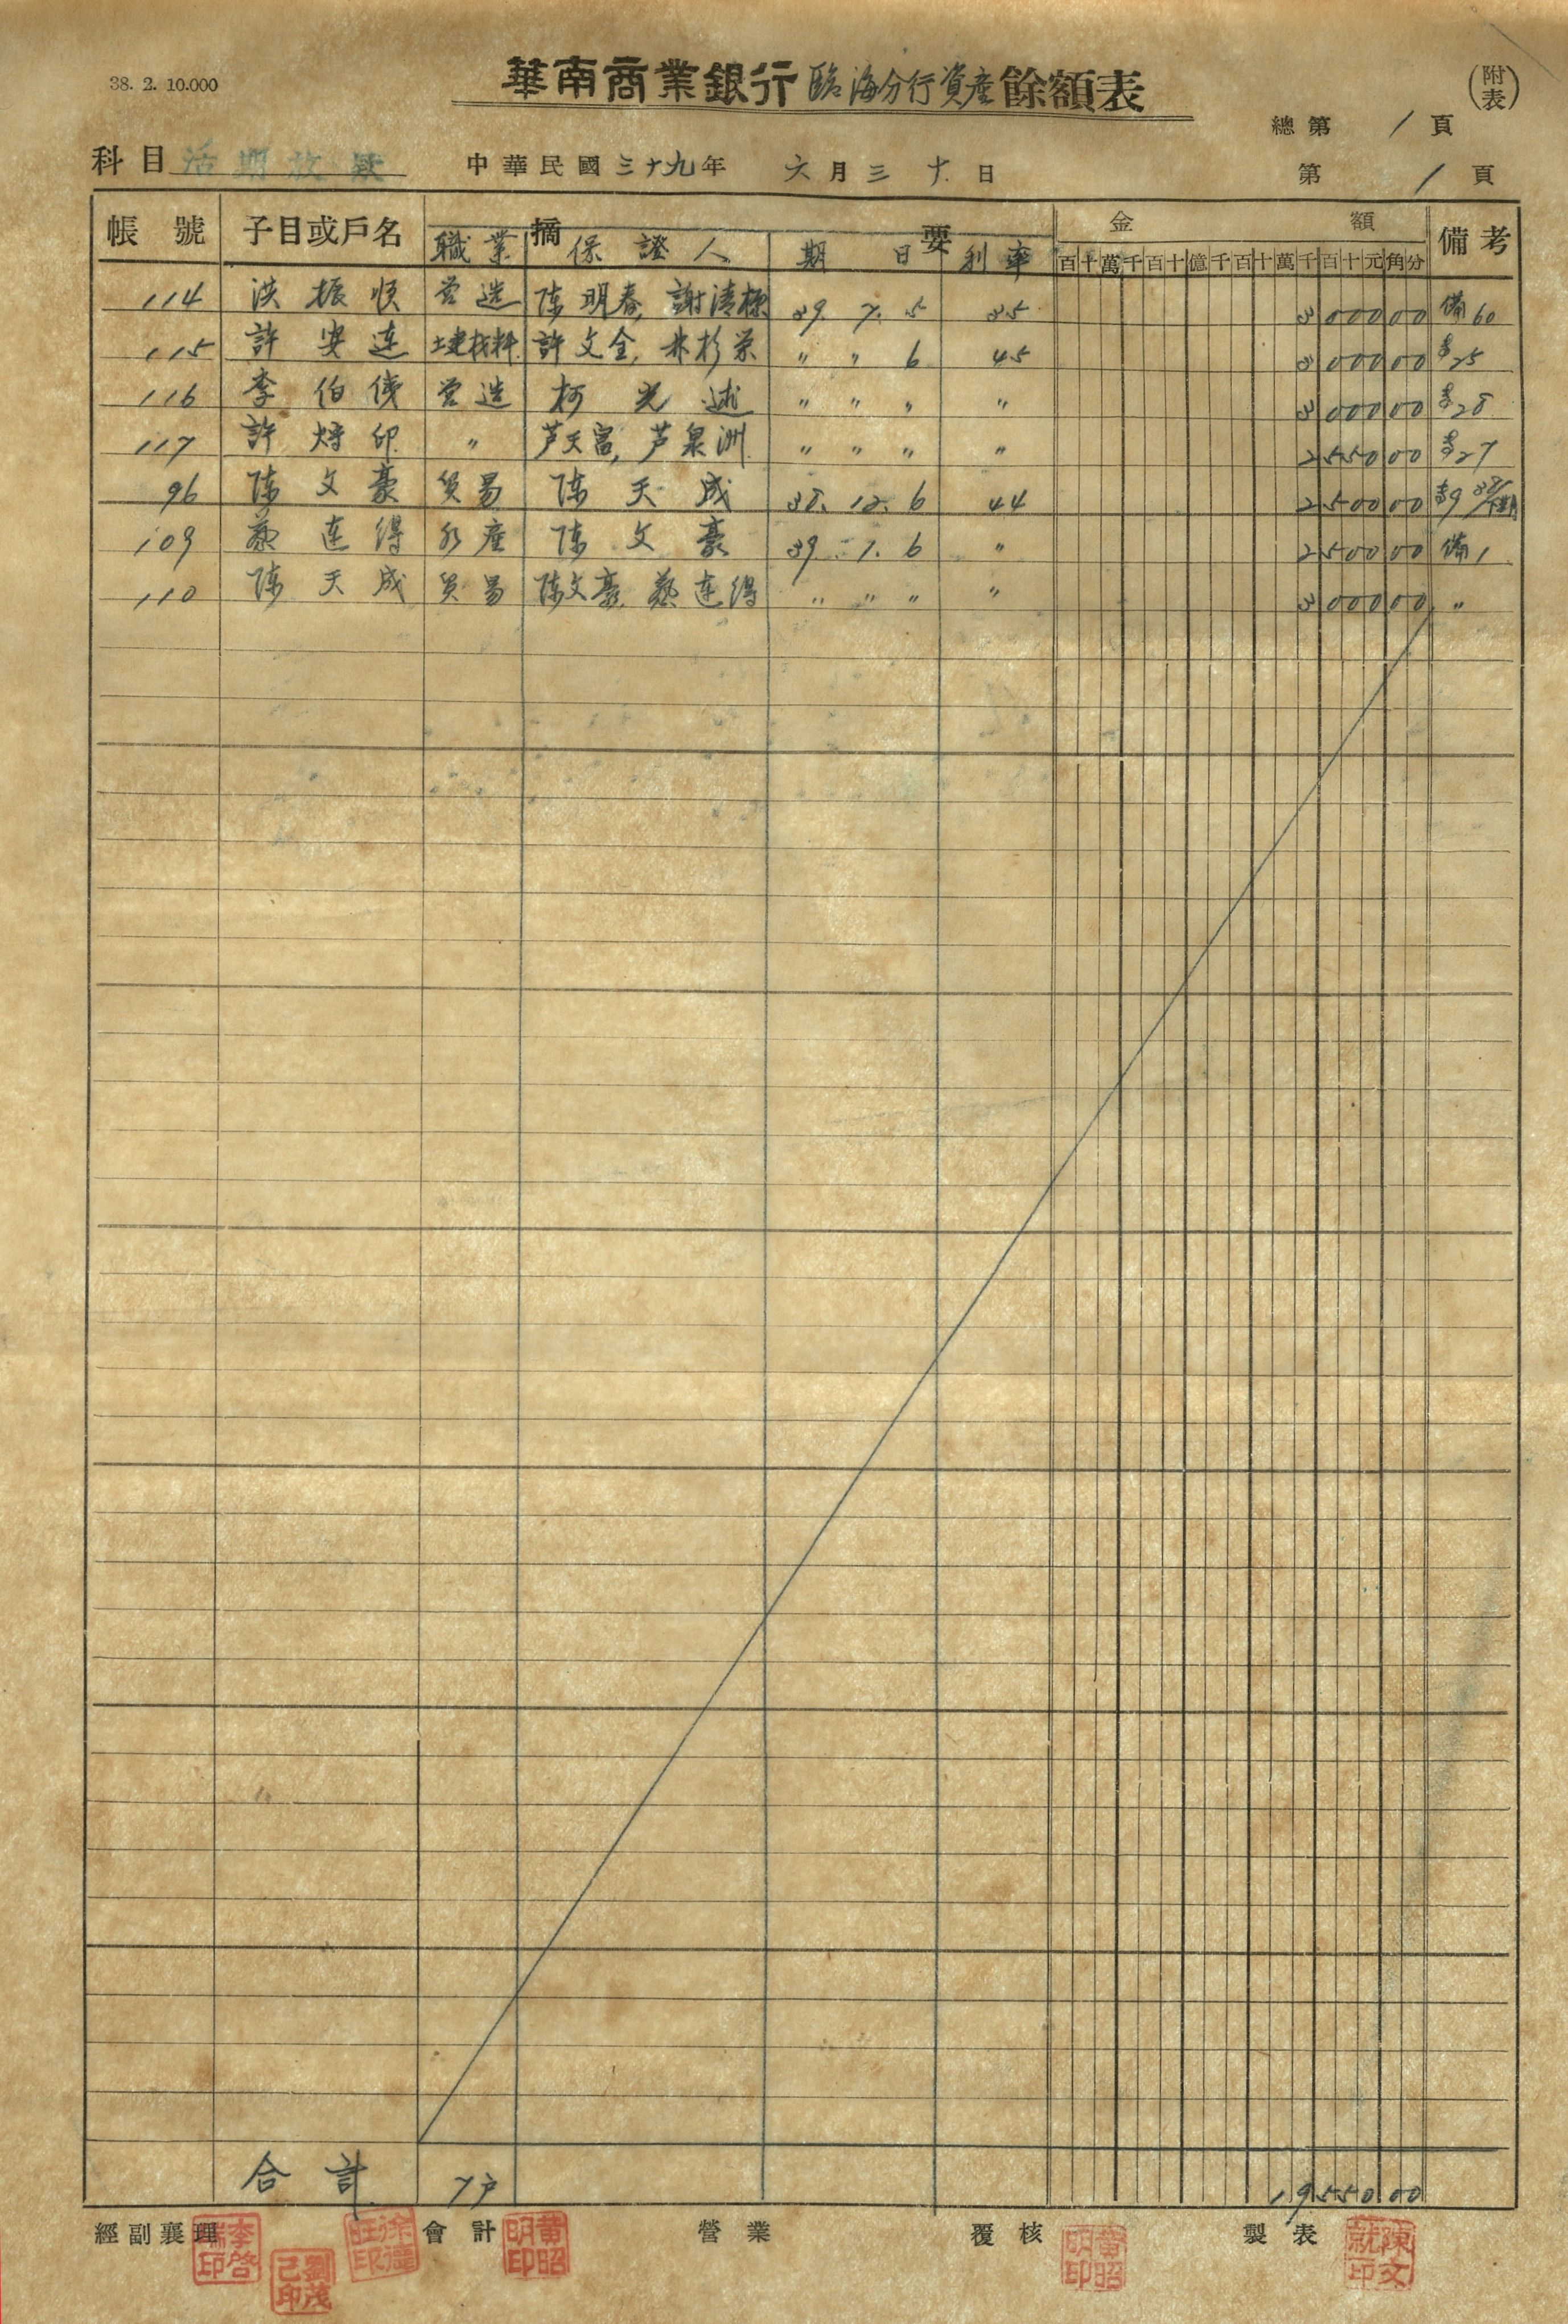 38. 2. 10.000
華南商業銀行臨海分行資產餘額表
(附表)
總第 1 頁
科目 活期放款 中華民國三十九年 六月三十日 第 1 頁
帳號 子目或戶名 摘要 金額 備考
職業 保證人 期日 利率 百十萬千百十億千百十萬千百十元角分
114 洪振 营造 陈明春, 謝清標 39. 7. 5 35 3000 00 備60
115 許安連 土建材料 許文全, 林杉荣 〃 〃 6 45 3000 00 25
116 李伯 营造 柯光述 〃 〃 〃 〃 3000 00 28
117 許 印 〃 芦天富, 芦泉洲 〃 〃 〃 〃 2550 00 27
96 陈文豪 貿易 陈天成 38. 12. 6 44 2500 00 9
109 蔡連得 水產 陈文豪 39. 7. 6 〃 2500 00 備1
110 陈天成 貿易 陈文豪, 蔡連得 〃 〃 〃 〃 3000 00 〃
合計 7戶 19550.00
經副襄理 會計 營業 覆核 製表
李啓瑞印
劉茂己印
徐德旺印
黃昭明印
黃昭明印
陳文就印